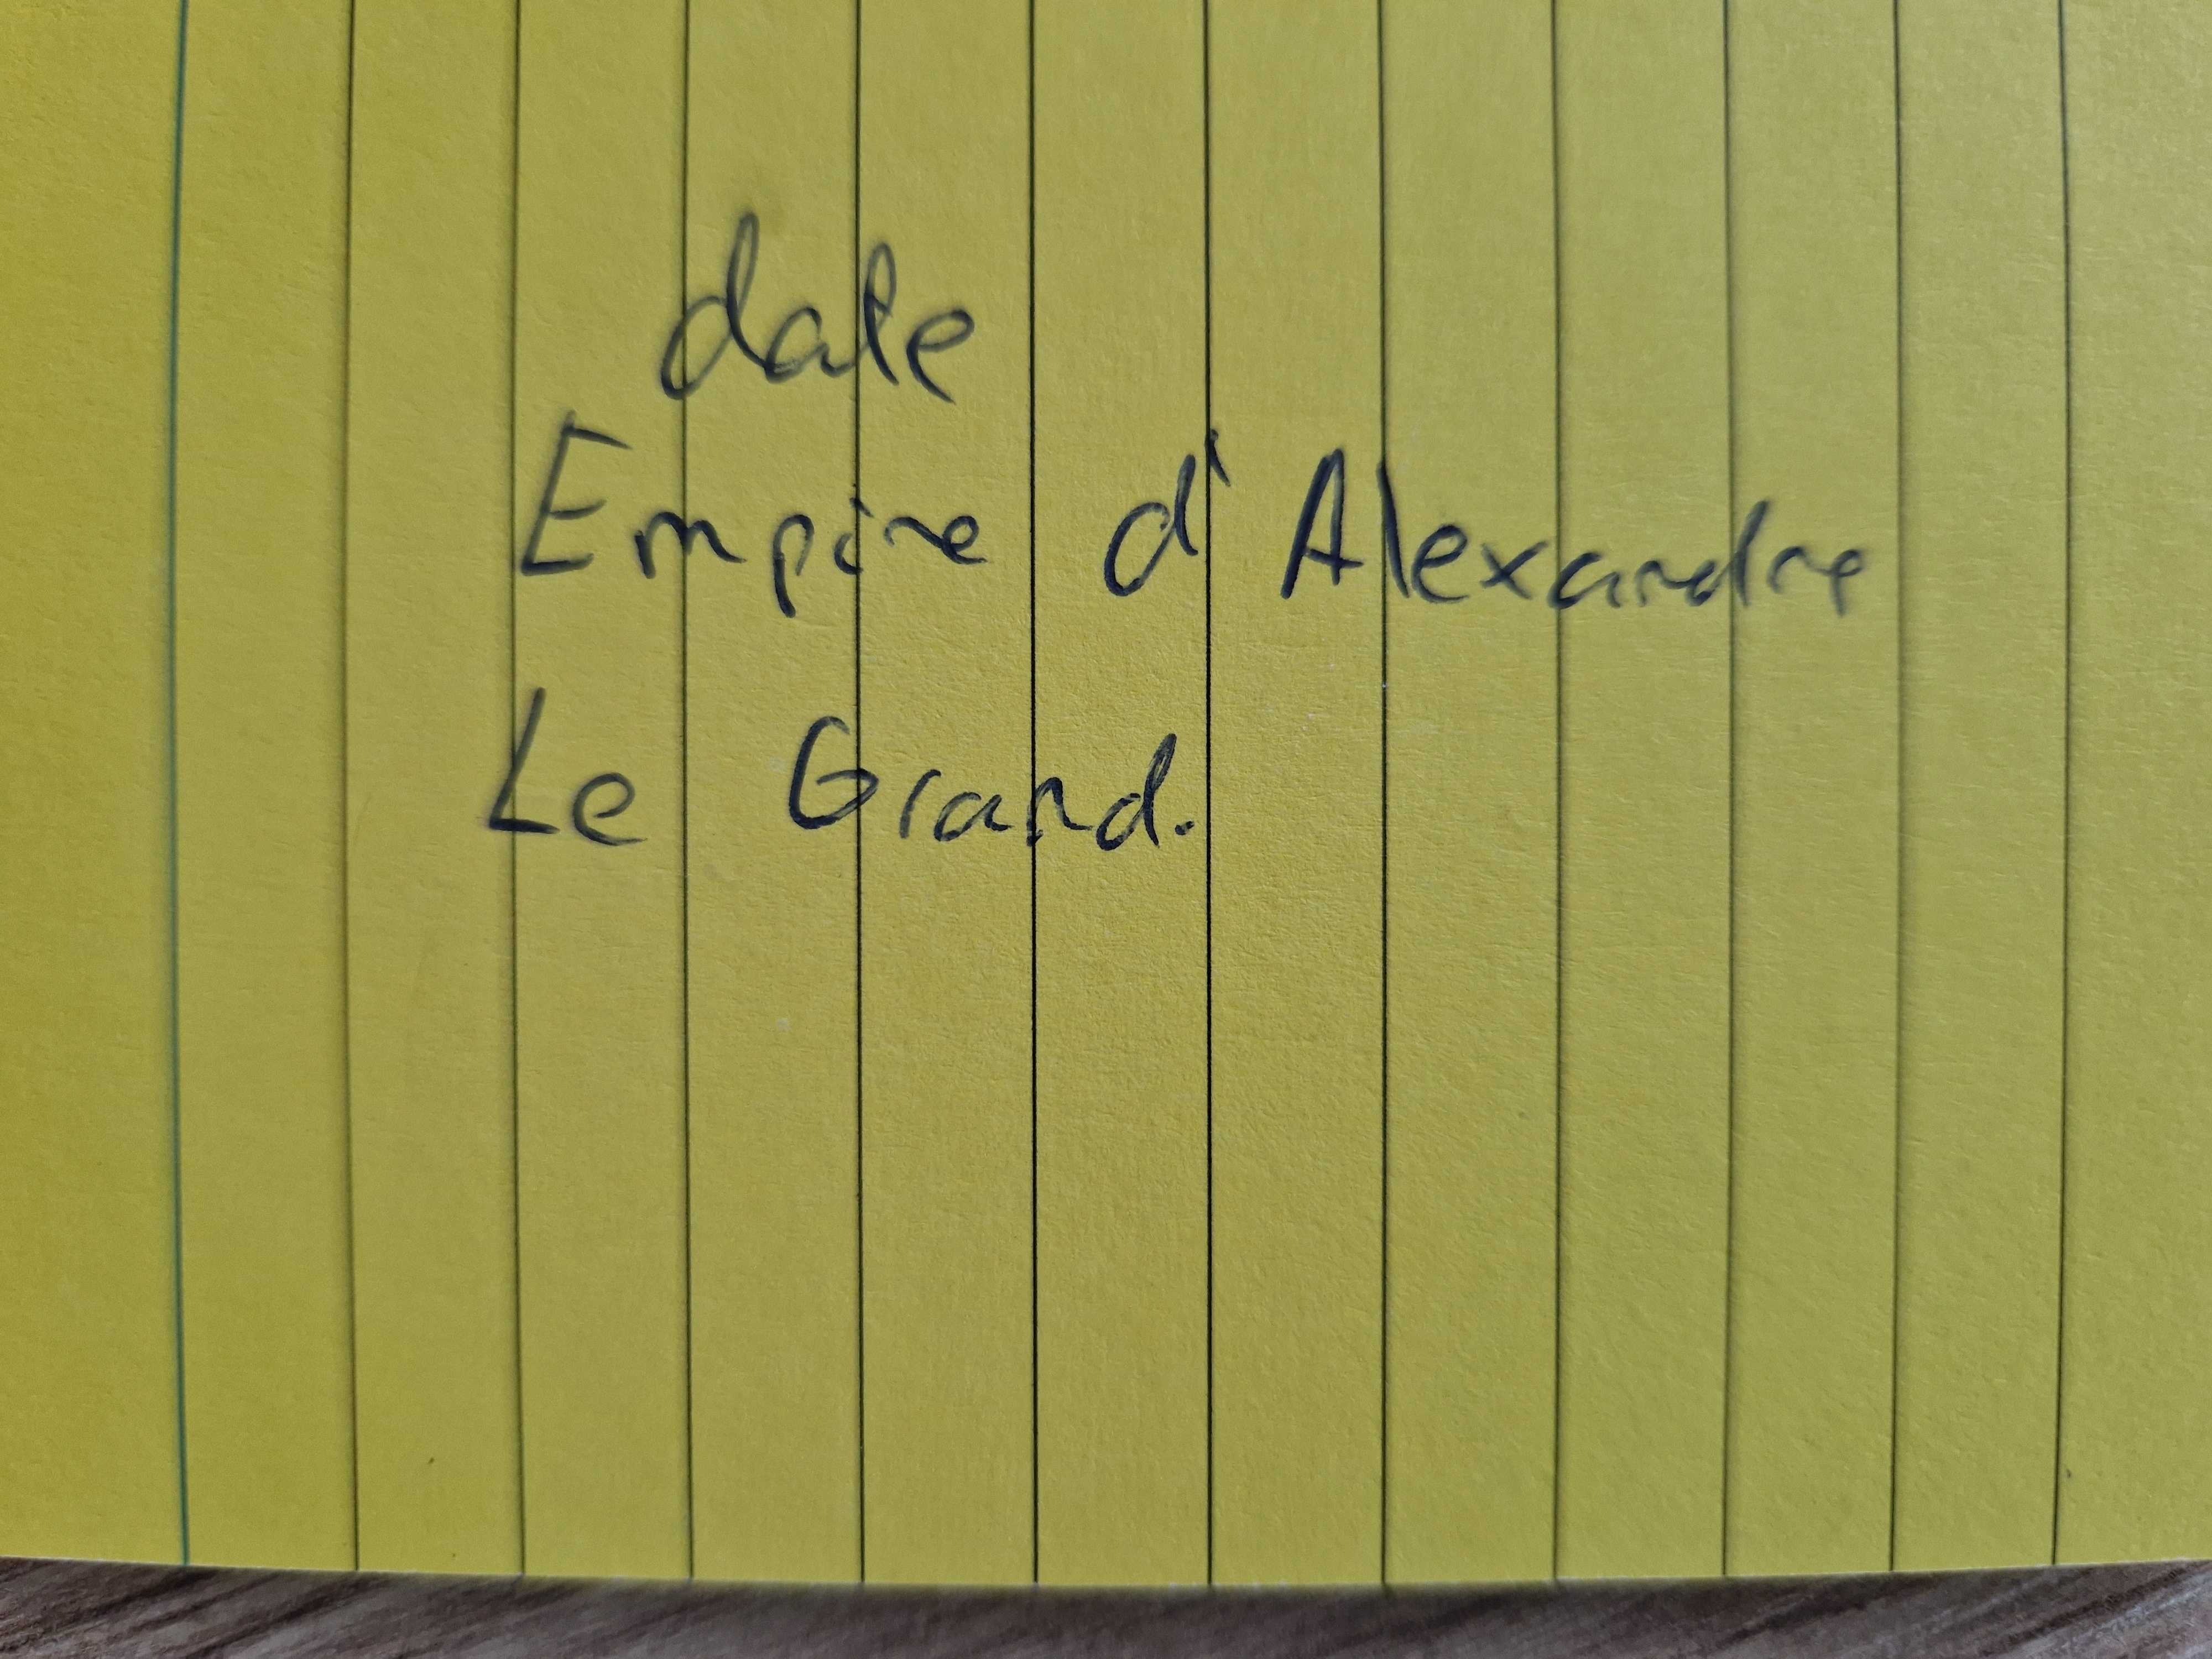 date
Empire d'Alexandre
Le Grand.